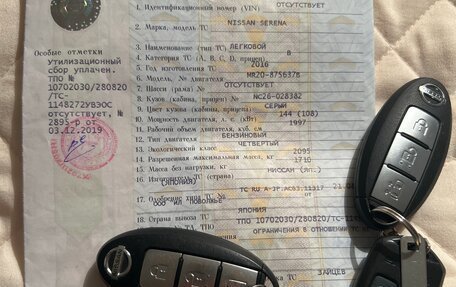 1. Идентификационный номер (VIN) ОТСУТСТВУЕТ
2. Марка, модель ТС NISSAN SERENA
3. Наименование (тип ТС) ЛЕГКОВОЙ
4. Категория ТС (A, B, C, D, прицеп) B
5. Год изготовления ТС 2016
6. Модель, № двигателя MR20-875637B
7. Шасси (рама) № ОТСУТСТВУЕТ
8. Кузов (кабина, прицеп) № NC26-028382
9. Цвет кузова (кабины, прицепа) СЕРЫЙ
10. Мощность двигателя, л. с. (кВт) 144 (106)
11. Рабочий объем двигателя, куб. см 1997
12. Тип двигателя БЕНЗИНОВЫЙ
13. Экологический класс ЧЕТВЕРТЫЙ
14. Разрешенная максимальная масса, кг 2095
15. Масса без нагрузки, кг 1710
16. Изготовитель ТС (страна) НИССАН
(ЯПОНИЯ)
17. Одобрение
18. Страна вывоза ТС ЯПОНИЯ
ТПО 10702030/280820/ТС-
ОГРАНИЧЕНИЯ В ОТНОШЕНИИ ТС
ТС ЗАЙЦЕВ
Особые отметки
УТИЛИЗАЦИОННЫЙ
СБОР УПЛАЧЕН.
ТПО №
10702030/280820
/ТС-
1148272УВЭОС
ОТСУТСТВУЕТ, №
2895-р ОТ
03.12.2019
NISSAN
NISSAN